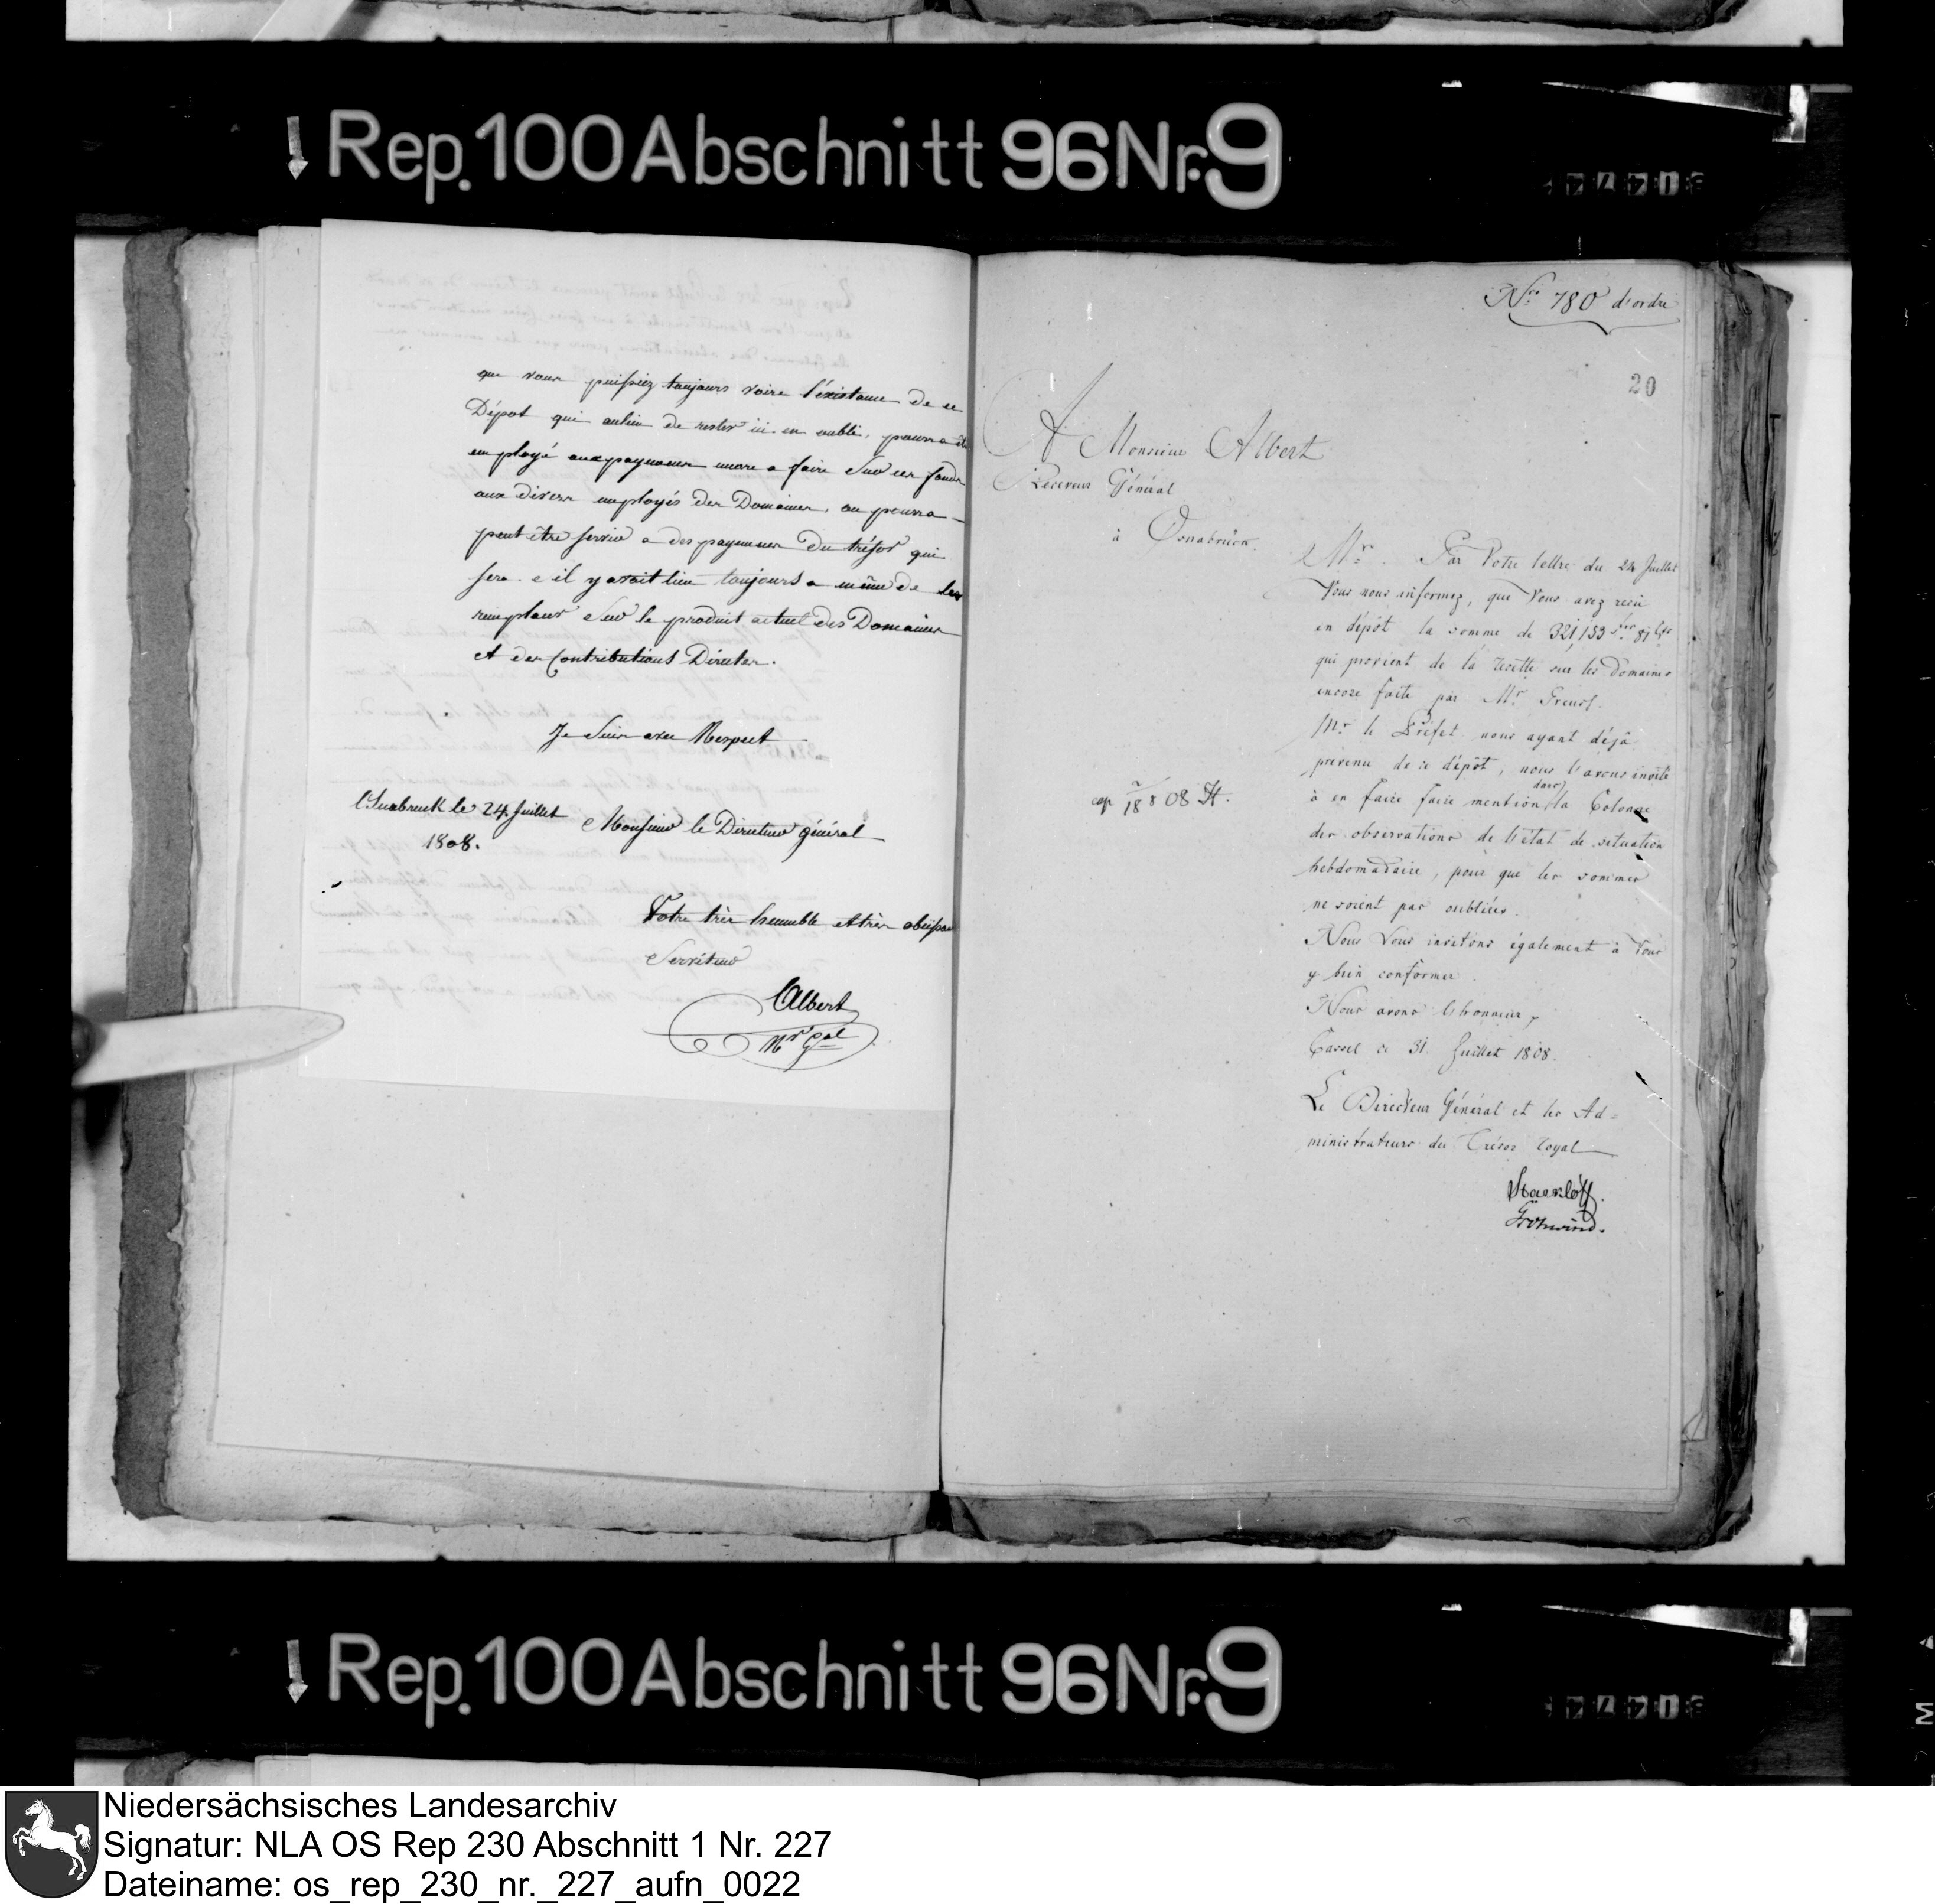 Rep. 100 Abschnitt 96 Nr. 9
que vous puissiez toujours voire l'éxistance de ce
Dépot qui aulieu de rester ici en oubli, pourra êt
employé aux payemens encore a faire Sur ces fonds
aux divers employés des Domaines, ou pourra
peut être servir a des payemens du trésor qui
sera s'il y avait lieu toujours a même de les
remplacer Sur le produit actuel des Domaines
et des Contributions Directes.
Je Suis avec Respect
Osnabruck le 24. Juillet
1808.
Monsieur le Directeur général
Votre très humble et très obéissan
Serviteur
Albert
Rr Gal
Nro 780 d'ordre
20
A Monsieur Albert
Receveur Général
à Osnabruck.
Mr. Par Votre lettre du 24 Juillet
Vous nous informez, que Vous avez recu
en dépôt la somme de 321,153 frs 81 Cts
qui provient de la recette sur les Domaines
encore faite par Mr
Mr le Préfet nous ayant déjà
prévenu de ce dépôt, nous l'avons invité
à en faire faire mention dans la Colonne
des observations de l'état de situation
hebdomadaire, pour que les sommes
ne soient pas oubliées.
Nous Vous invitons également à Vous
y bien conformer.
Nous avons l'honneur,
Cassel ce 31. Juillet 1808.
Le Directeur Général et les Ad=
ministrateurs du Trésor royal
cop 18 8 08 St.
Rep. 100 Abschnitt 96 Nr. 9
Niedersächsisches Landesarchiv
Signatur: NLA OS Rep 230 Abschnitt 1 Nr. 227
Dateiname: os_rep_230_nr._227_aufn_0022